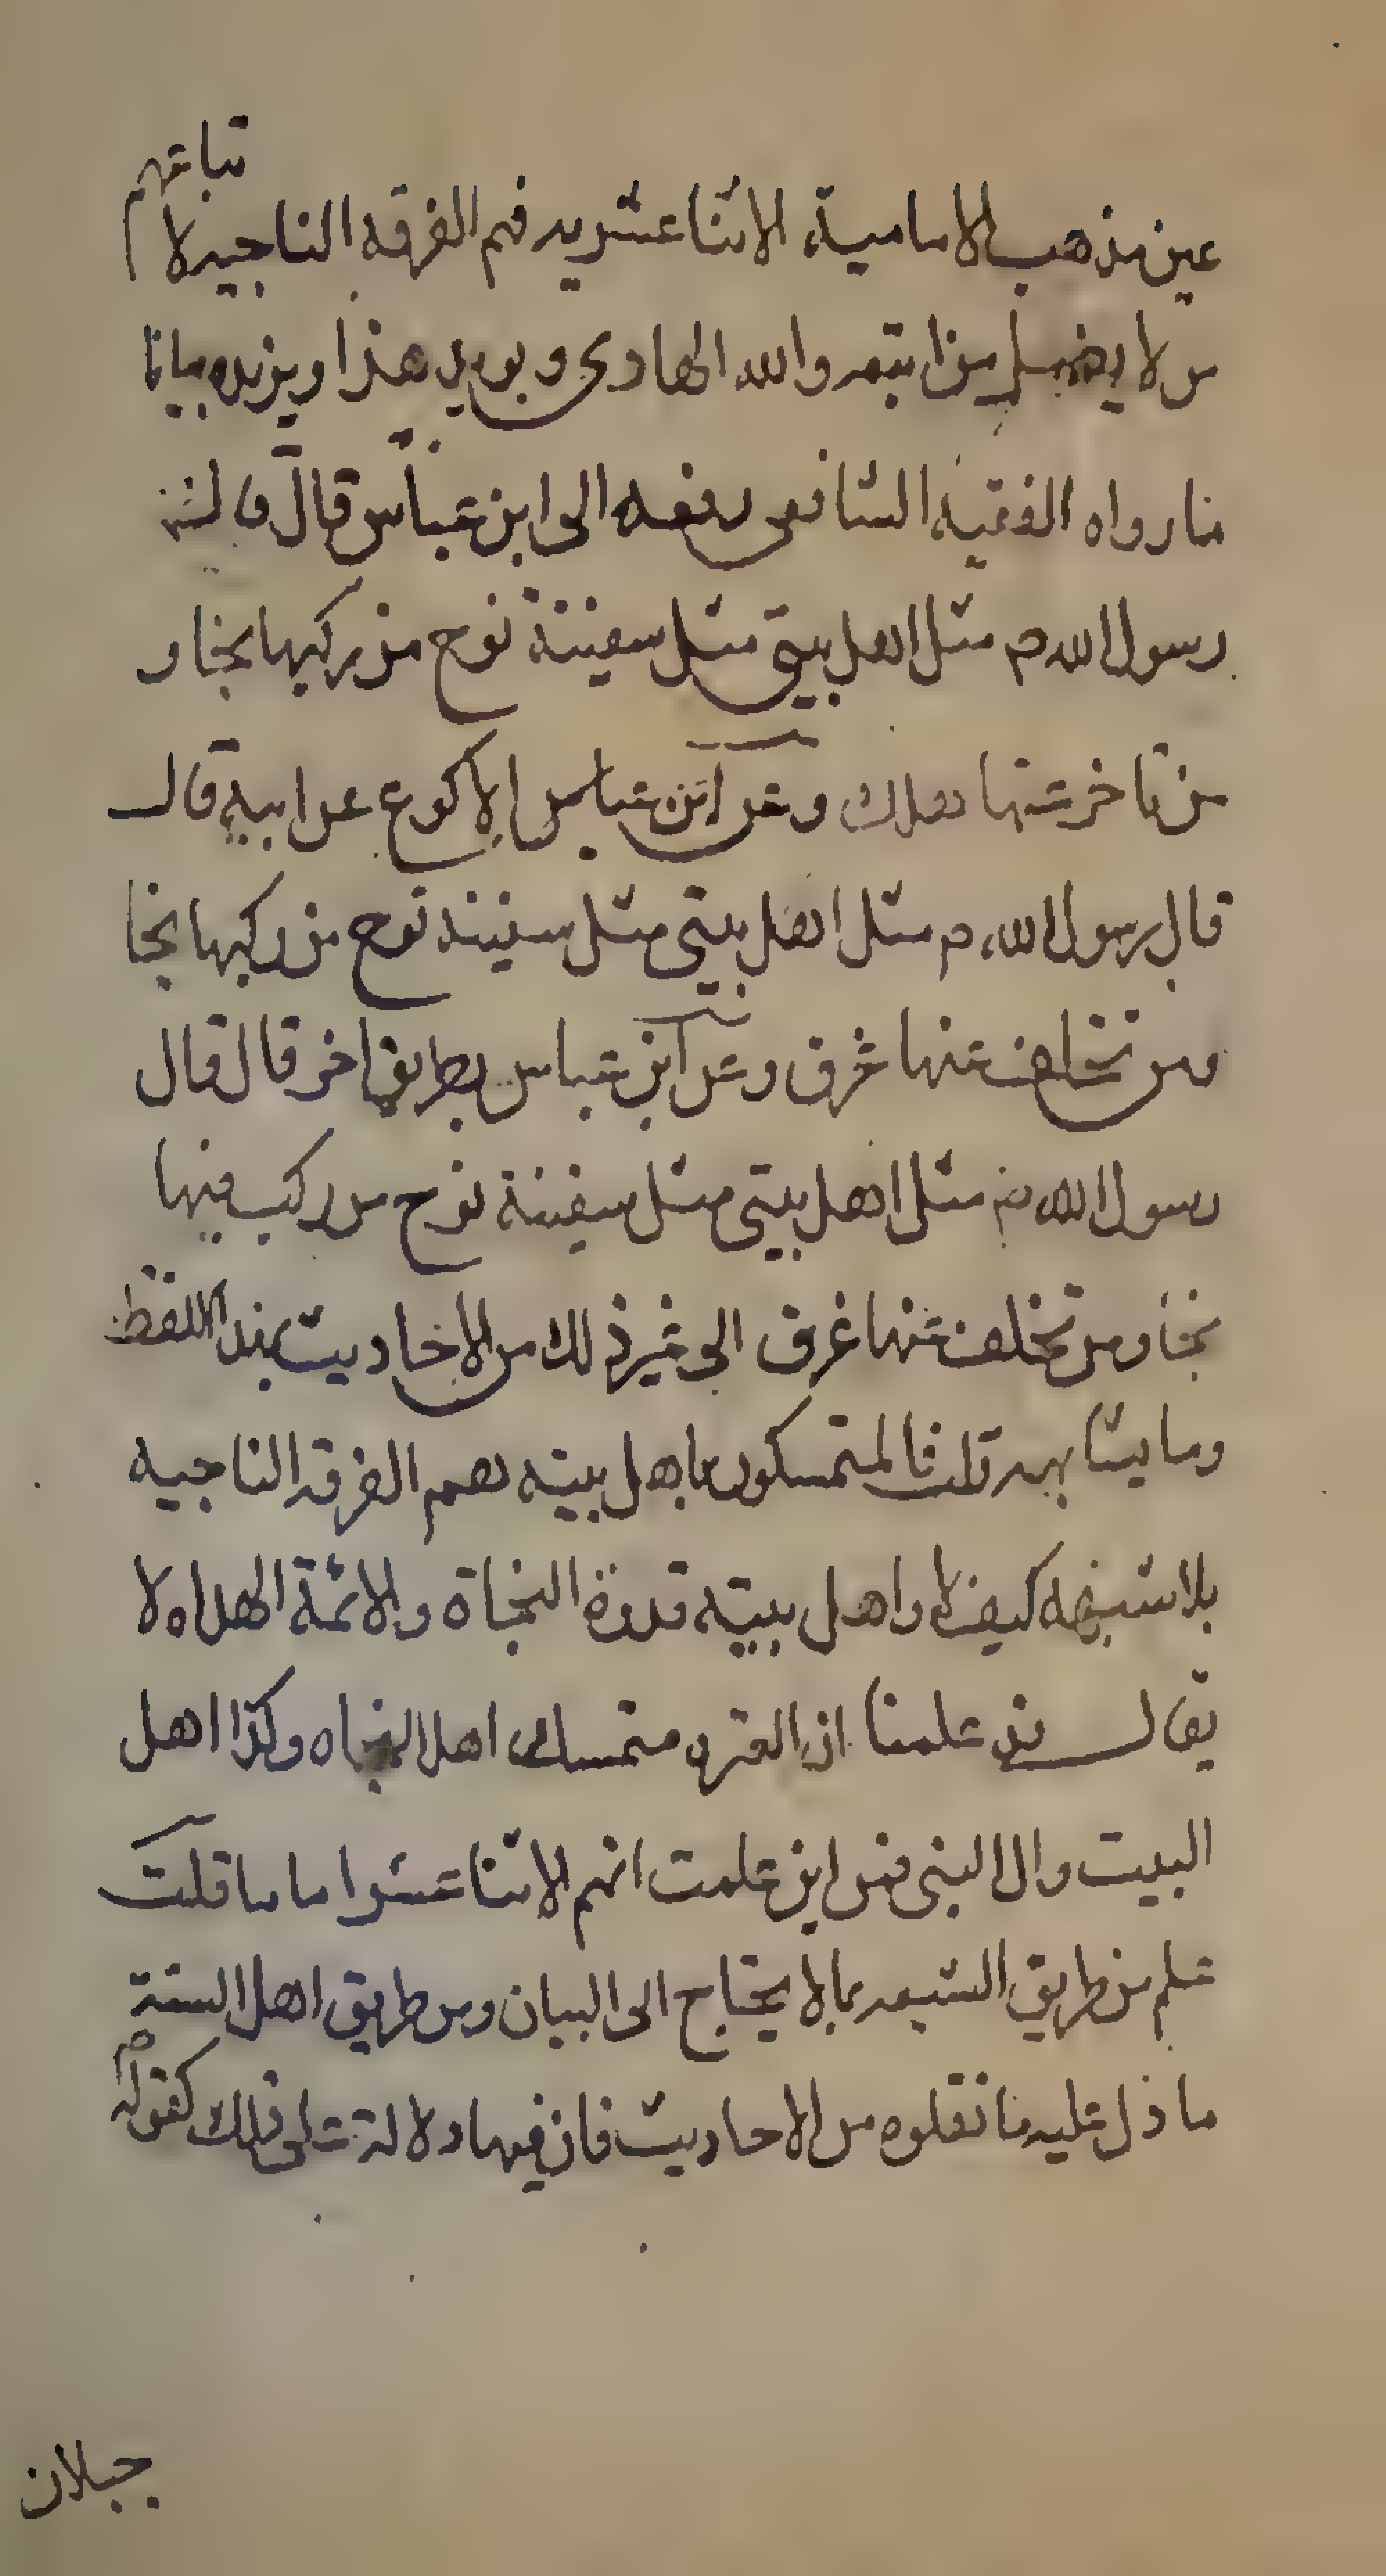 عين مذهب الامامية الاثنا عشريه فهم الفرقه الناجيه لاتباعهم
من لا يضل من اتبعه والله الهادى ويويد هذا ويزيده بيانا
ما رواه الفقيه الشافعى رفعه الى ابن عباس قال قال
رسول الله ص مثل اهل بيتى مثل سفينة نوح من ركبها نجا و
من تاخر عنها هلك وعن ابن عباس الاكوع عن ابيه قال
قال رسول الله ص مثل اهل بيتى مثل سفينه نوح من ركبها نجا
ومن تخلف عنها غرق وعن ابن عباس بطريق اخر قال قال
رسول الله ص مثل اهل بيتى مثل سفينة نوح من ركب فيها
نجا ومن تخلف عنها غرق الى غير ذلك من الاخاديث بهذا اللفظ
وما يشابهه قلت فالمتمسكون باهل بيته هم الفرقه الناجيه
بلا شبهه كيف لا واهل بيته قدوة النجاة والائمة الهداه لا
يقال قد علمنا ان العتره متمسك اهل النجاه وكذا اهل
البيت وال النبى فمن اين علمت انهم الاثنا عشر اماما قلت
علم من طريق الشيعه بما لا يحتاج الى البيان ومن طريق اهل السنة
ما دل عليه ما نقلوه من الاحاديث فان فيها دلالة على ذلك كقوله ص
جبلان